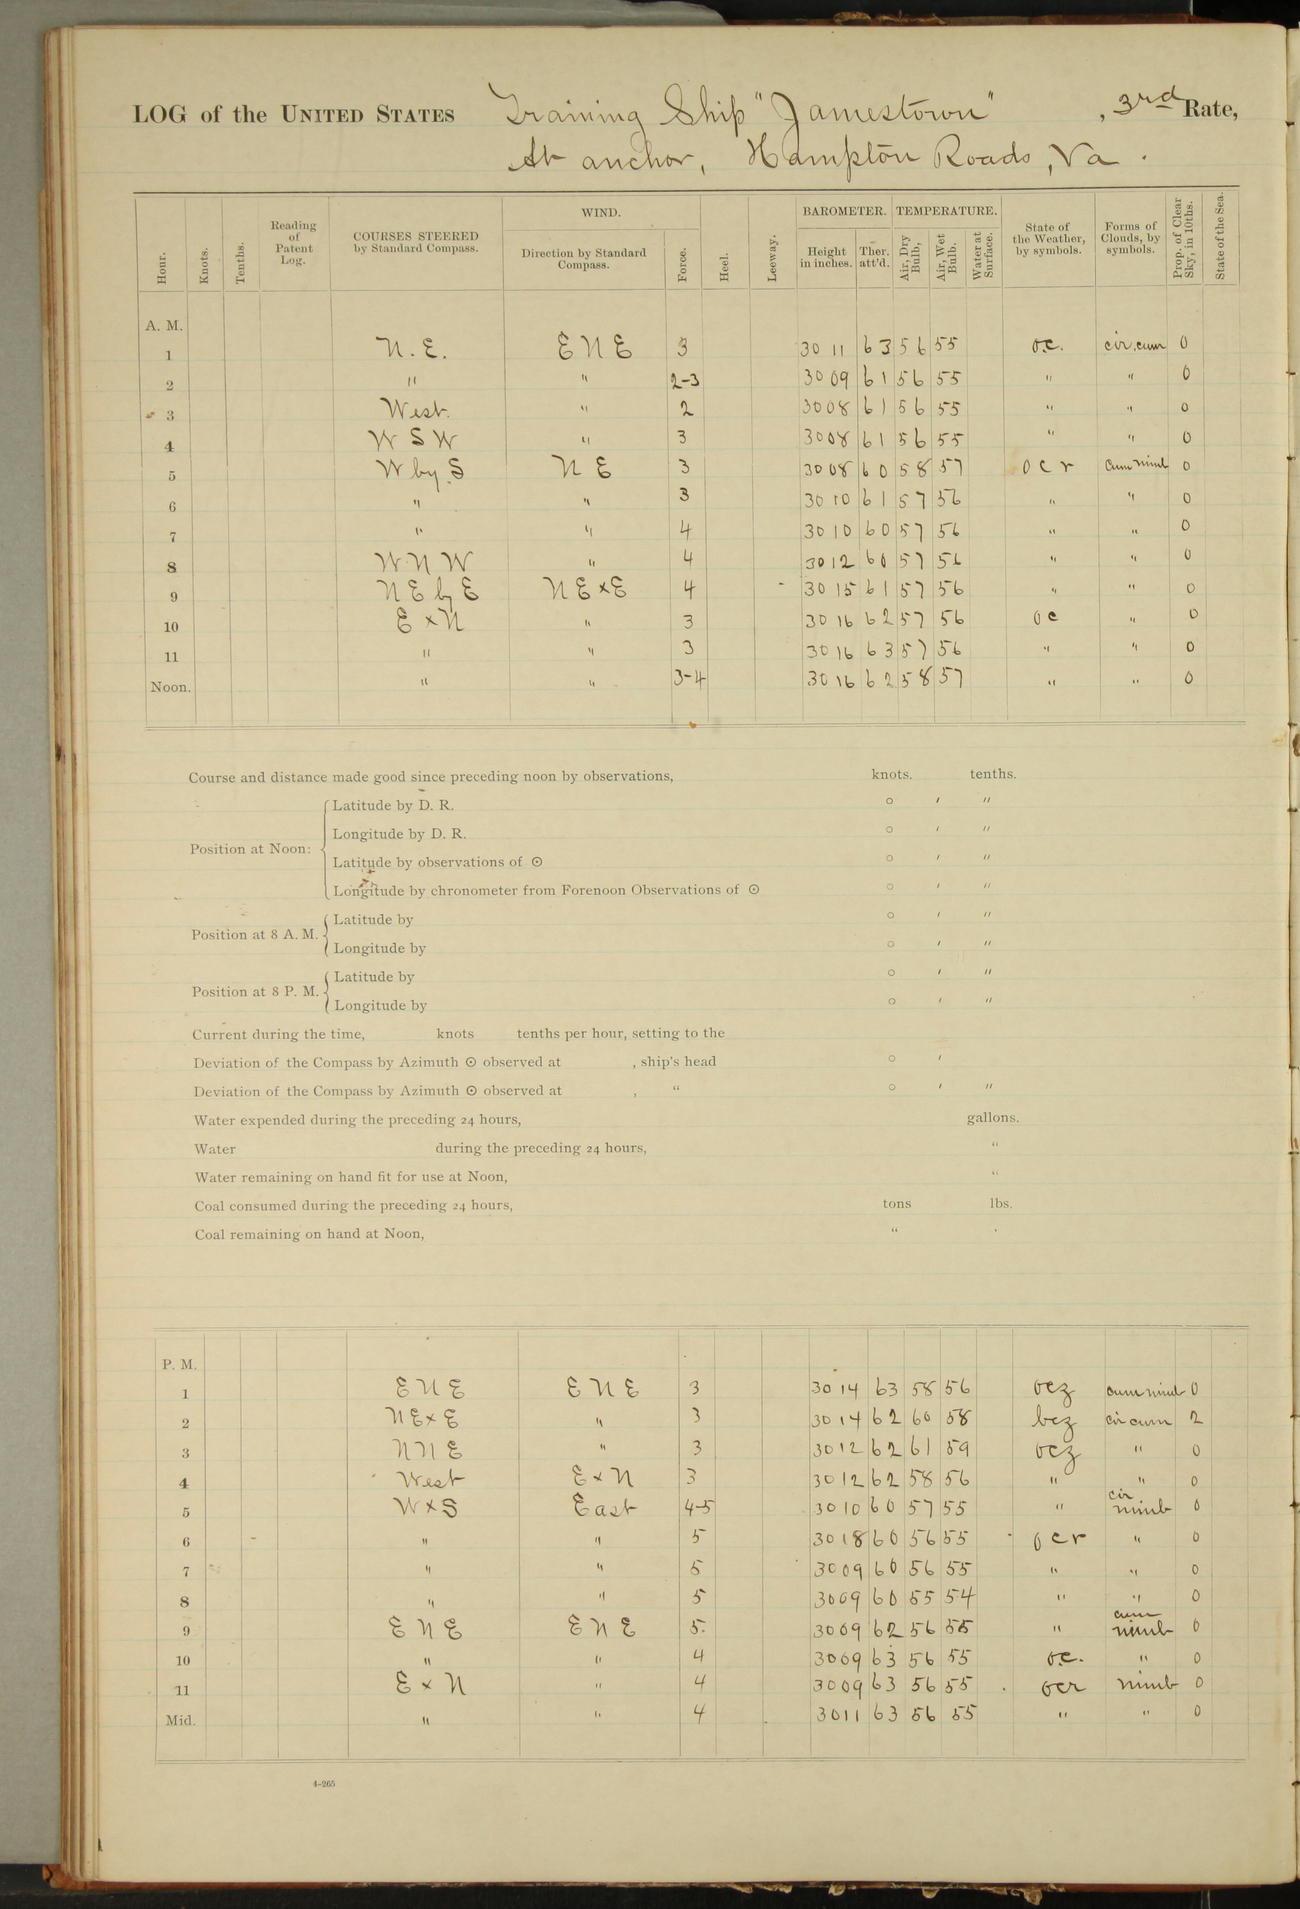 LOG of the UNITED STATES Training Ship "Jamestown", 3rd Rate,
At anchor, Hampton Roads, Va.
Hour. Knots. Tenths. Reading of Patent Log. COURSES STEERED by Standard Compass. WIND. Direction by Standard Compass. Force. Heel. Leeway. BAROMETER. Height in inches. Ther. att'd. TEMPERATURE. Air, Dry Bulb, Air, Wet Bulb. Water at Surface. State of the Weather, by symbols. Forms of Clouds, by symbols. Prop. of Clear Sky, in 10ths. State of the Sea.
A. M.
1 N.E. ENE 3 30 11 63 56 55 o.c. cir.cum 0
2 " " 2-3 30 09 61 56 55 " " 0
3 West. " 2 30 08 61 56 55 " " 0
4 WSW " 3 30 08 61 56 55 " " 0
5 W by S NE 3 30 08 60 58 57 ocr cum nimb 0
6 " " 3 30 10 61 57 56 " " 0
7 " " 4 30 10 60 57 56 " " 0
8 WNW " 4 30 12 60 57 56 " " 0
9 NE by E NExE 4 30 15 61 57 56 " " 0
10 ExN " 3 30 16 62 57 56 oc " 0
11 " " 3 30 16 63 57 56 " " 0
Noon. " " 3-4 30 16 62 58 57 " " 0
Course and distance made good since preceding noon by observations, knots. tenths.
Position at Noon: Latitude by D. R. ° ′ ″
Longitude by D. R. ° ′ ″
Latitude by observations of ⊙ ° ′ ″
Longitude by chronometer from Forenoon Observations of ⊙ ° ′ ″
Position at 8 A. M. Latitude by ° ′ ″
Longitude by ° ′ ″
Position at 8 P. M. Latitude by ° ′ ″
Longitude by ° ′ ″
Current during the time, knots tenths per hour, setting to the
Deviation of the Compass by Azimuth ⊙ observed at , ship's head ° ′
Deviation of the Compass by Azimuth ⊙ observed at , " ° ′ ″
Water expended during the preceding 24 hours, gallons.
Water during the preceding 24 hours, "
Water remaining on hand fit for use at Noon, "
Coal consumed during the preceding 24 hours, tons lbs.
Coal remaining on hand at Noon, "
P. M.
1 ENE ENE 3 30 14 63 58 56 ocz cum nimb 0
2 NExE " 3 30 14 62 60 58 bcz cir cum 2
3 NNE " 3 30 12 62 61 59 ocz " 0
4 West ExN 3 30 12 62 58 56 " " 0
5 WxS East 4-5 30 10 60 57 55 " cir nimb 0
6 " " 5 30 18 60 56 55 ocr " 0
7 " " 5 30 09 60 56 55 " " 0
8 " " 5 30 09 60 55 54 " " 0
9 ENE ENE 5. 30 09 62 56 55 " cum nimb 0
10 " " 4 30 09 63 56 55 o.c. " 0
11 ExN " 4 30 09 63 56 55 ocr nimb 0
Mid. " " 4 30 11 63 56 55 " " 0
4-265